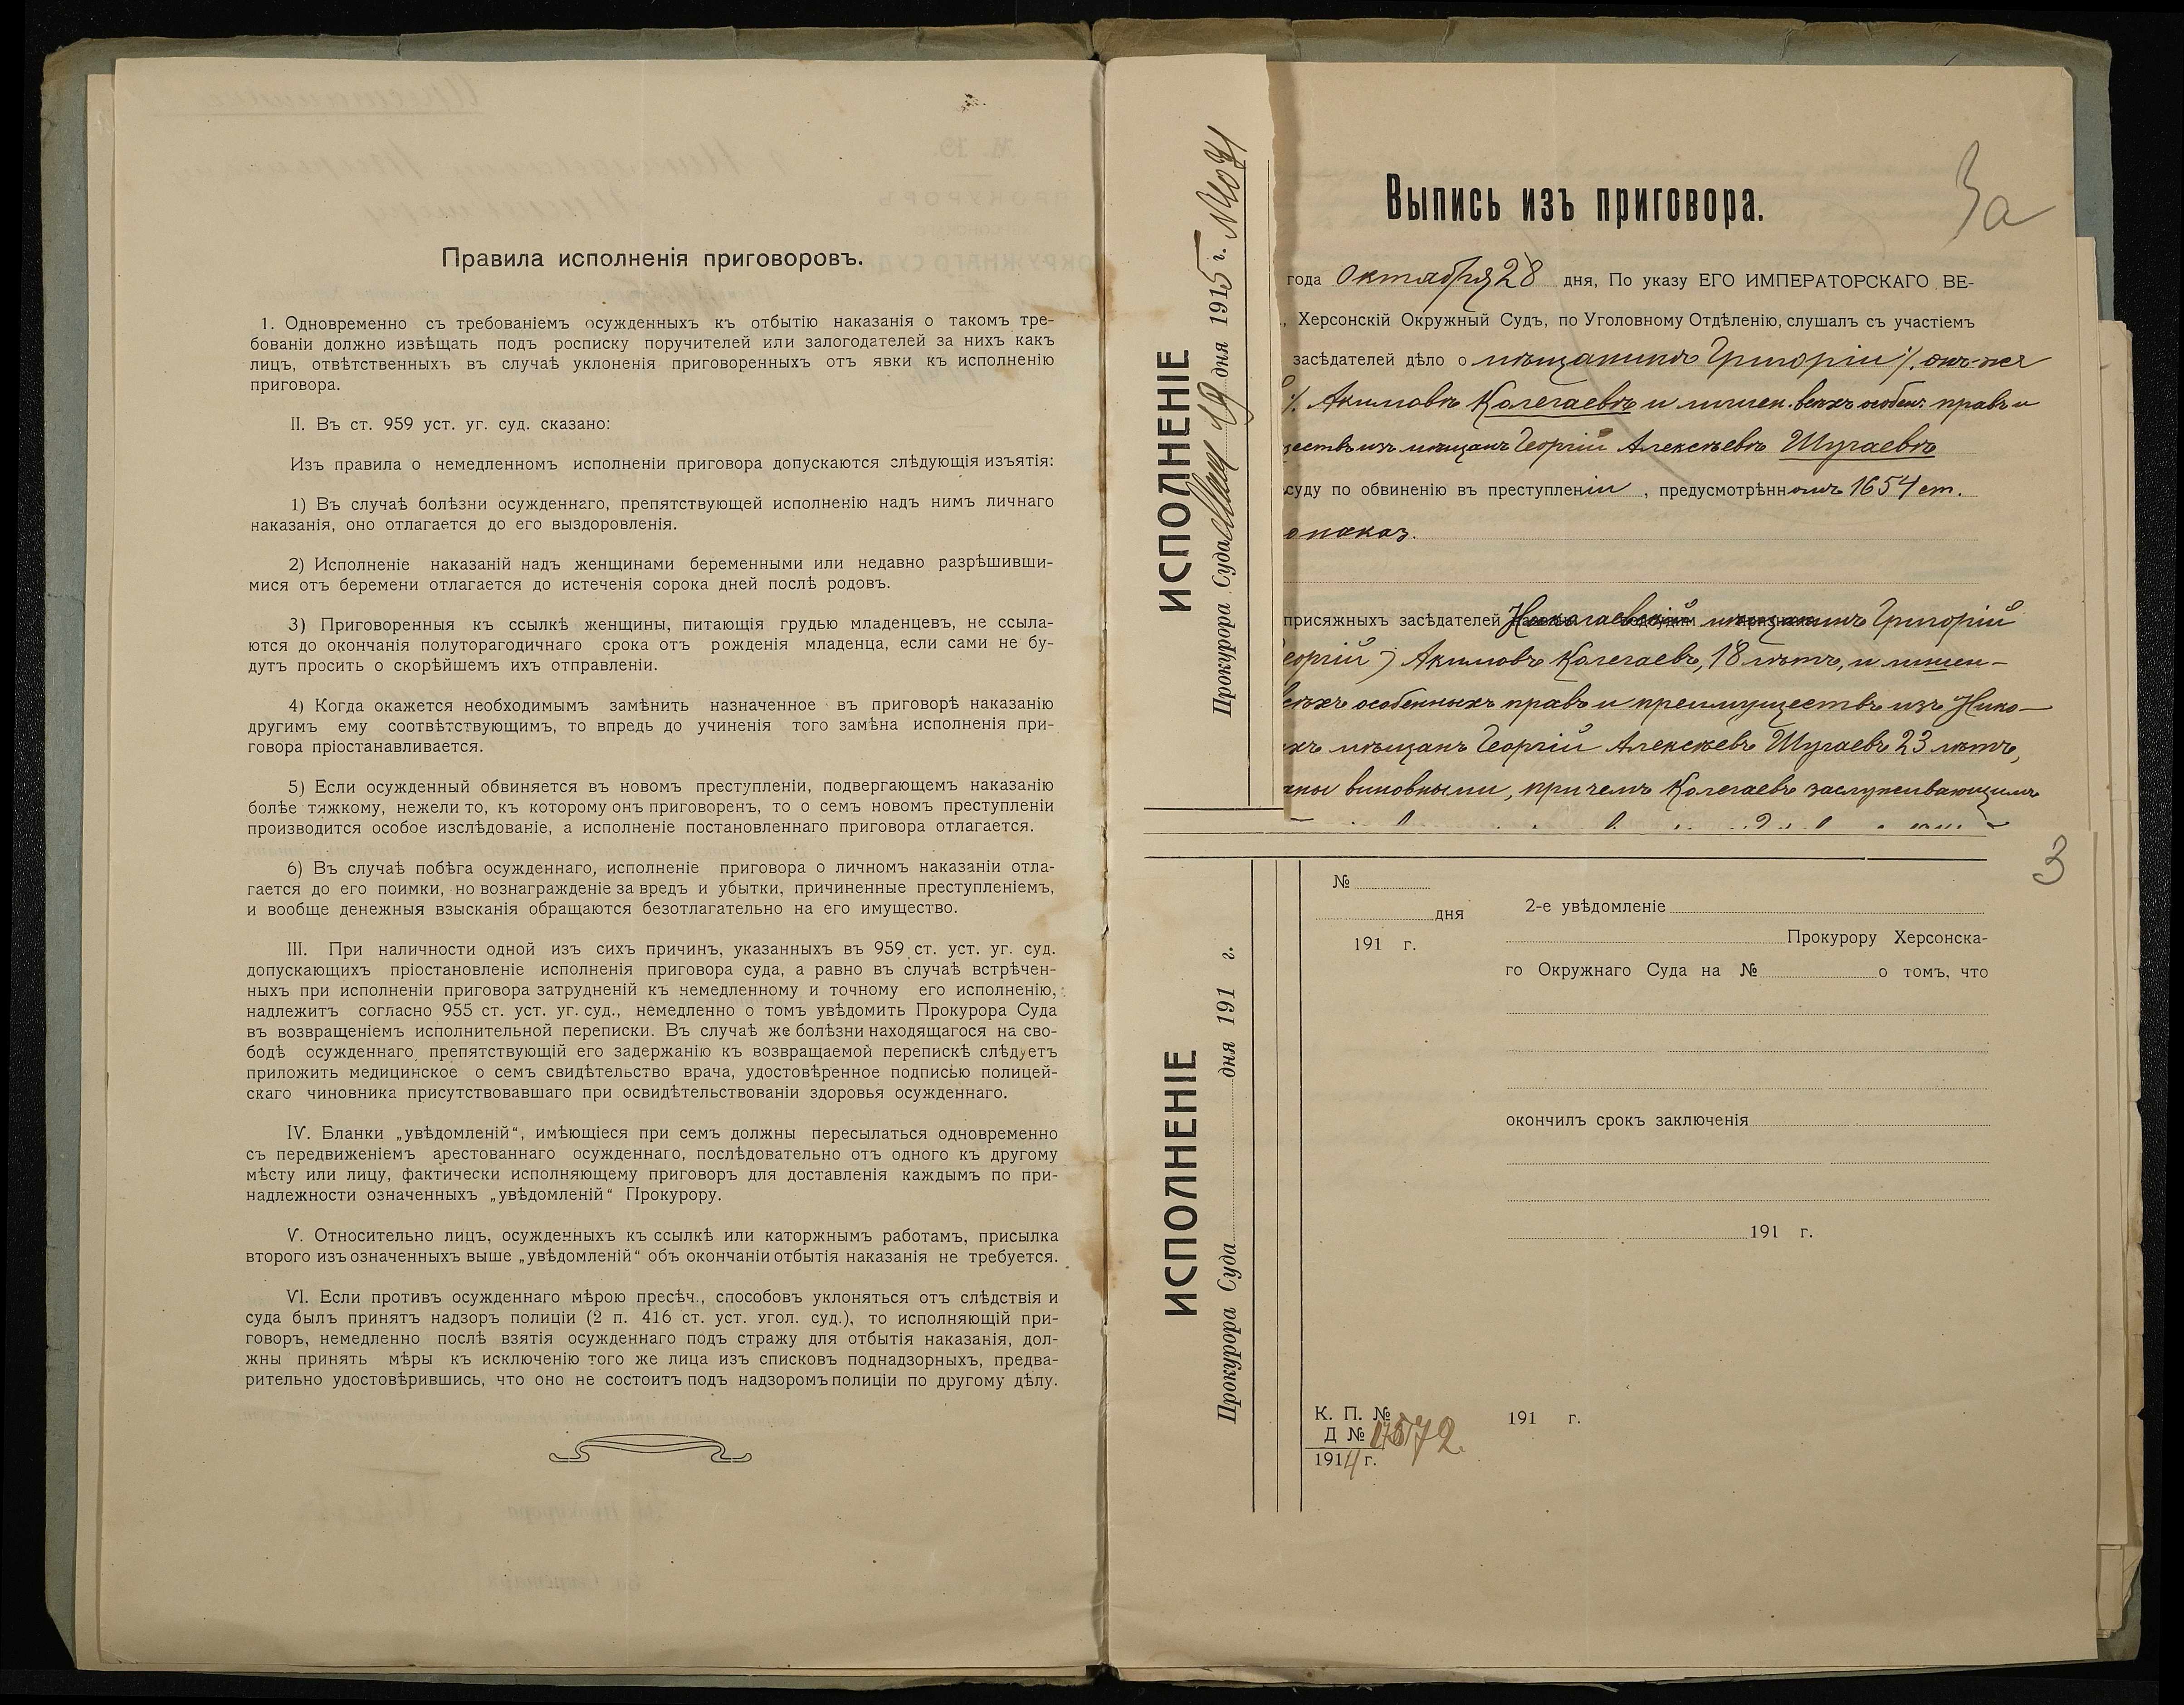 Правила исполненія приговоровъ.
1. Одновременно съ требованіемъ осужденныхъ къ отбытію наказанія о такомъ тре-
бованіи должно извѣщать подъ росписку поручителей или залогодателей за нихъ какъ
лицъ, отвѣтственныхъ въ случаѣ уклоненія приговоренныхъ отъ явки къ исполненію
приговора.
II. Въ ст. 959 уст. уг. суд. сказано:
Изъ правила о немедленномъ исполненіи приговора допускаются слѣдующія изъятія:
1) Въ случаѣ болѣзни осужденнаго, препятствующей исполненію надъ нимъ личнаго
наказанія, оно отлагается до его выздоровленія.
2) Исполненіе наказаній надъ женщинами беременными или недавно разрѣшивши-
мися отъ беремени отлагается до истеченія сорока дней послѣ родовъ.
3) Приговоренныя къ ссылкѣ женщины, питающія грудью младенцевъ, не ссыла-
ются до окончанія полуторагодичнаго срока отъ рожденія младенца, если сами не бу-
дутъ просить о скорѣйшемъ ихъ отправленіи.
4) Когда окажется необходимымъ замѣнить назначенное въ приговорѣ наказанію
другимъ ему соотвѣтствующимъ, то впредь до учиненія того замѣна исполненія при-
говора пріостанавливается.
5) Если осужденный обвиняется въ новомъ преступленіи, подвергающемъ наказанію
болѣе тяжкому, нежели то, къ которому онъ приговоренъ, то о семъ новомъ преступленіи
производится особое изслѣдованіе, а исполненіе постановленнаго приговора отлагается.
6) Въ случаѣ побѣга осужденнаго, исполненіе приговора о личномъ наказаніи отла-
гается до его поимки, но вознагражденіе за вредъ и убытки, причиненные преступленіемъ,
и вообще денежныя взысканія обращаются безотлагательно на его имущество.
III. При наличности одной изъ сихъ причинъ, указанныхъ въ 959 ст. уст. уг. суд.
допускающихъ пріостановленіе исполненія приговора суда, а равно въ случаѣ встрѣчен-
ныхъ при исполненіи приговора затрудненій къ немедленному и точному его исполненію,
надлежитъ согласно 955 ст. уст. уг. суд., немедленно о томъ увѣдомить Прокурора Суда
въ возвращеніемъ исполнительной переписки. Въ случаѣ же болѣзни находящагося на сво-
бодѣ осужденнаго, препятствующій его задержанію къ возвращаемой перепискѣ слѣдуетъ
приложить медицинское о семъ свидѣтельство врача, удостовѣренное подписью полицей-
скаго чиновника присутствовавшаго при освидѣтельствованіи здоровья осужденнаго.
IV. Бланки „увѣдомленій“, имѣющіеся при семъ должны пересылаться одновременно
съ передвиженіемъ арестованнаго осужденнаго, послѣдовательно отъ одного къ другому
мѣсту или лицу, фактически исполняющему приговоръ для доставленія каждымъ по при-
надлежности означенныхъ „увѣдомленій“ Прокурору.
V. Относительно лицъ, осужденныхъ къ ссылкѣ или каторжнымъ работамъ, присылка
второго изъ означенныхъ выше „увѣдомленій“ объ окончаніи отбытія наказанія не требуется.
VI. Если противъ осужденнаго мѣрою пресѣч., способовъ уклоняться отъ слѣдствія и
суда былъ принятъ надзоръ полиціи (2 п. 416 ст. уст. угол. суд.), то исполняющій при-
говоръ, немедленно послѣ взятія осужденнаго подъ стражу для отбытія наказанія, дол-
жны принять мѣры къ исключенію того же лица изъ списковъ поднадзорныхъ, предва-
рительно удостовѣрившись, что оно не состоитъ подъ надзоромъ полиціи по другому дѣлу.
ИСПОЛНЕНІЕ
Прокурора Суда 19 дня 1915 г. №
3а
Выпись изъ приговора.
года Октября 28 дня, По указу ЕГО ИМПЕРАТОРСКАГО ВЕ-
, Херсонскій Окружный Судъ, по Уголовному Отдѣленію, слушалъ съ участіемъ
засѣдателей дѣло о мѣщанинѣ Григоріи онъ-же
Акимовѣ Колегаевѣ и лишен. всѣхъ особен. правъ и
ществъ изъ мѣщанъ Георгіи Алексѣевѣ Шугаевѣ
суду по обвиненію въ преступленіи, предусмотрѣнномъ 1654 ст.
о наказ.
присяжныхъ засѣдателей Николаевскій мѣщанинъ Григорій
еоргій) Акимовъ Колегаевъ, 18 лѣтъ, и лишен-
всѣхъ особенныхъ правъ и преимуществъ изъ Нико-
хъ мѣщанъ Георгій Алексѣевъ Шугаевъ 23 лѣтъ,
аны виновными, при чемъ Колегаевъ заслуживающимъ
3
ИСПОЛНЕНІЕ
Прокурора Суда дня 191 г.
№
дня
191 г.
2-е увѣдомленіе
Прокурору Херсонска-
го Окружнаго Суда на № о томъ, что
окончилъ срокъ заключенія
191 г.
К. П. №
Д №
1914 г.
191 г.